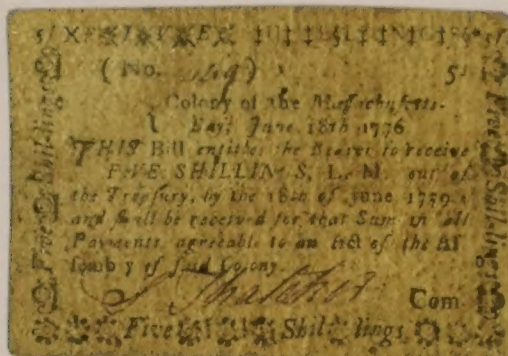 5/ FIVE SHILLINGS 5/
( No. ) 5s
Colony of the Massachusetts-
Bay, June 18th 1776
THIS Bill entitles the Bearer to receive
FIVE SHILLINGS, L. M. out of
the Treasury, by the 18th of June 1779.
and shall be received for that Sum in all
Payments, agreeable to an Act of the As
sembly of said Colony.
Thatcher Com.
Five Shillings
Five Shillings
Five Shillings